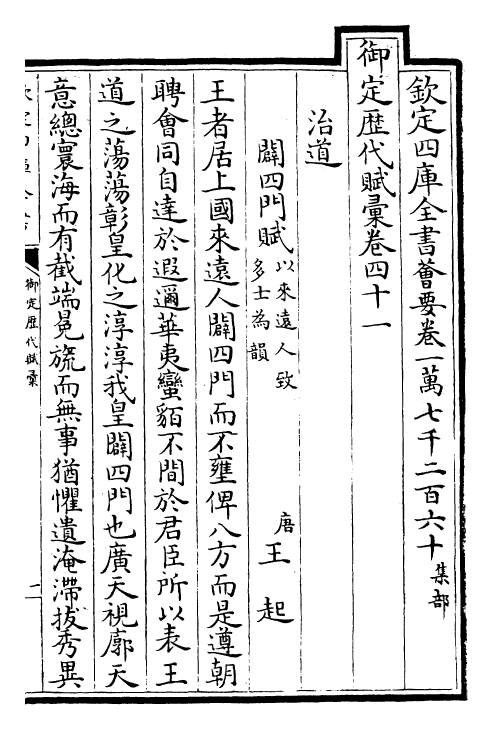 欽定四庫全書薈要卷一萬七千二百六十集部
御定歷代賦彙卷四十一
治道
闢四門賦以來遠人致多士為韻
唐王起
王者居上國來遠人闢四門而不壅俾八方而是遵朝
聘會同自達於遐邇華夷蠻貊不間於君臣所以表王
道之蕩蕩彰皇化之淳淳我皇闢四門也廣天視廓天
意總寰海而有截端冕旒而無事猶懼遺淹滯拔秀異
御定歷代賦彙